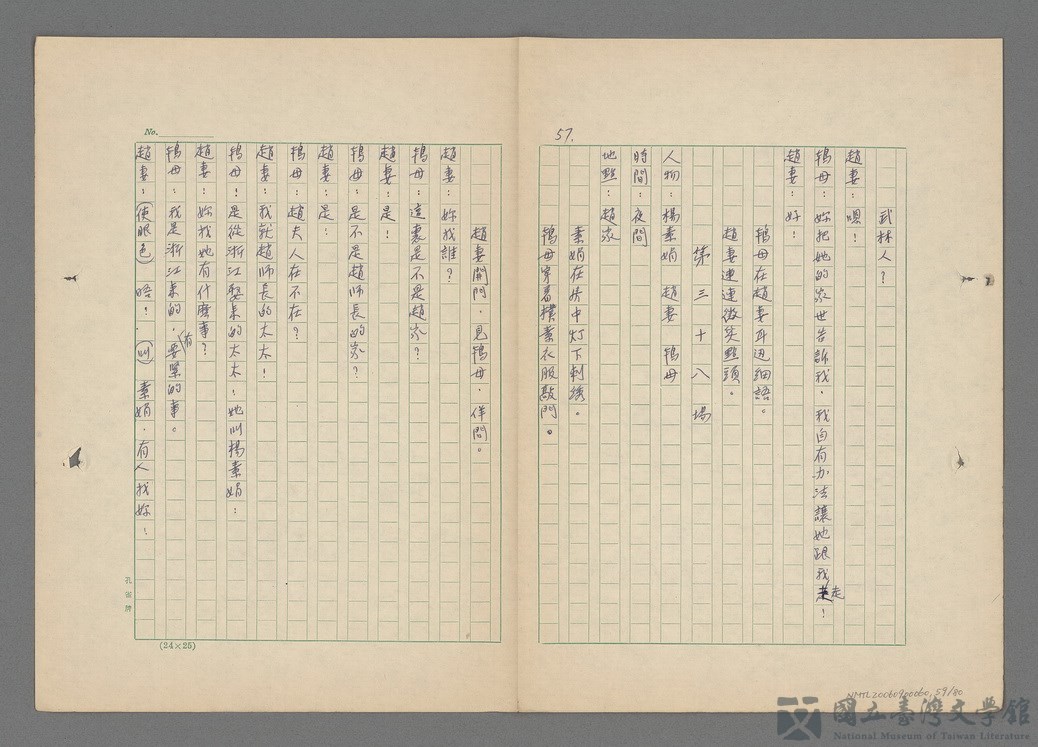 57.
武林人？
趙妻：嗯！
鴇母：妳把她的家世告訴我，我自有办法讓她跟我走！
趙妻：好！
鴇母在趙妻耳边細語。
趙妻連連微笑點頭。
第三十八場
人物：楊素娟 趙妻 鴇母
時間：夜間
地點：趙家
素娟在房中灯下刺綉。
鴇母穿着樸素衣服敲門。
No.
趙妻開門，見鴇母，佯問。
趙妻：妳找誰？
鴇母：這裏是不是趙家？
趙妻：是！
鴇母：是不是趙師長的家？
趙妻：是：
鴇母：趙夫人在不在？
趙妻：我就趙師長的太太！
鴇母！是從浙江娶來的太太！她叫楊素娟：
趙妻：妳找她有什麼事？
鴇母：我是浙江來的，有要緊的事。
趙妻：(使眼色) 唔！(叫) 素娟，有人找妳！
孔雀牌
(24×25)
NMTL20060900060, 59/80
國立臺灣文學館
National Museum of Taiwan Literature